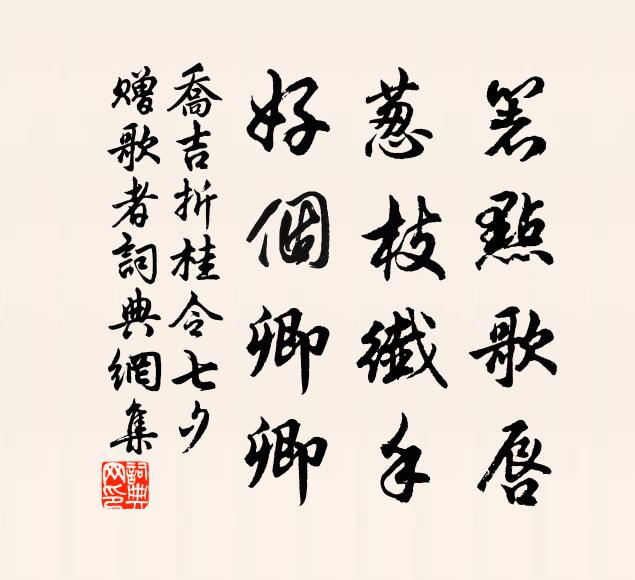 箬點歌唇
葱枝纖手
好個卿卿
喬吉折桂令七夕
贈歌者詞典網集
詞典
网印